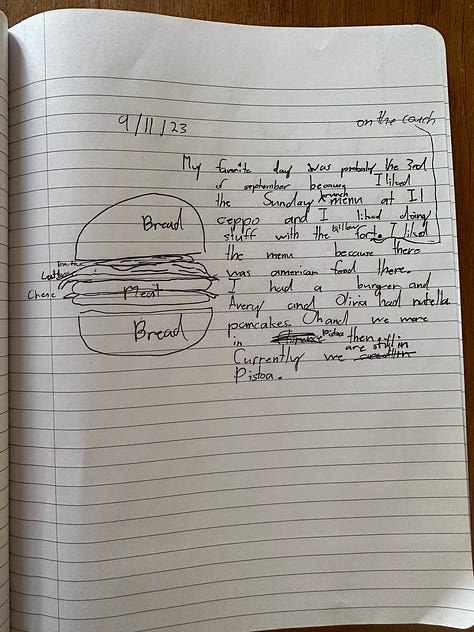 9/11/23
on the couch
My favrite day was probaly the 3rd
of september because I liked
the Sunday brunch menu at Il
ceppo and I liked doing
stuff with the pillow fort. I liked
the menu because there
was american food there.
I had a burger and
Avery and Olivia had nutella
pancakes. Oh and we were
in Pistoa then.
Currently we are still in
Pistoa.
Bread
Meat
Chese
Bread